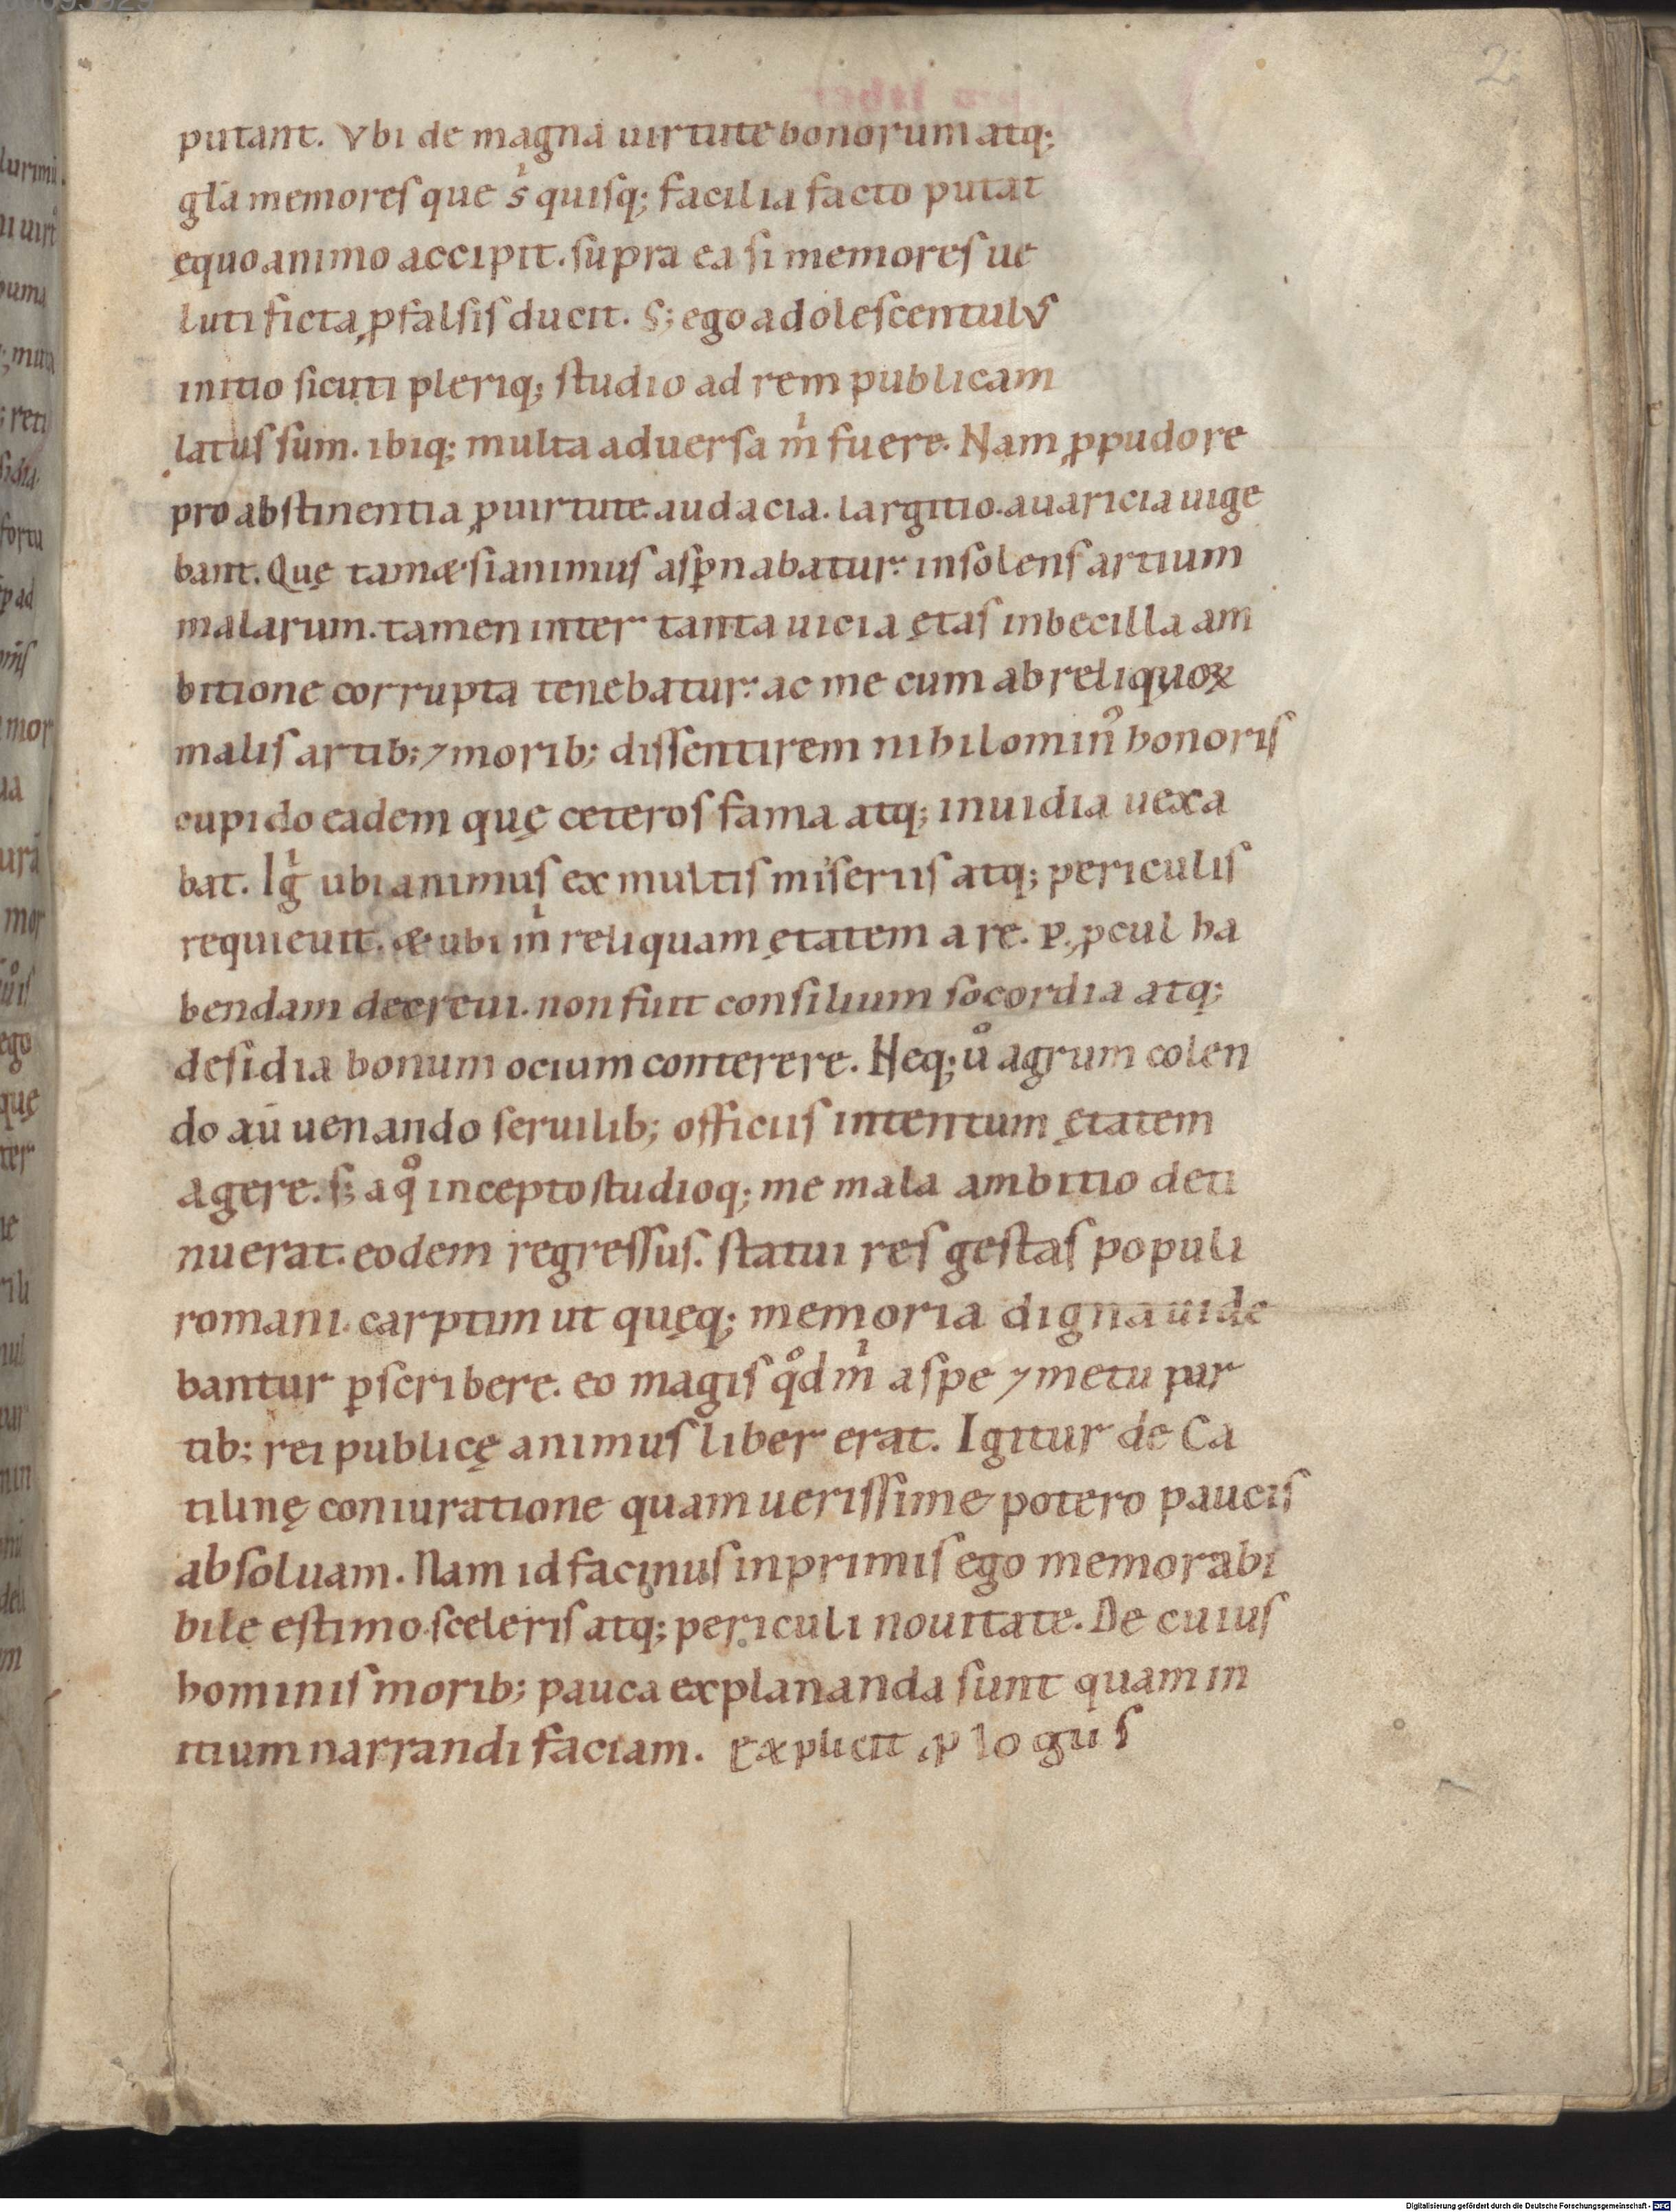 2.
putant. Vbi de magna uirtute bonorum atq;
gła memoreſ que ſ̓ quiſq; facilia facto putat
ęquo animo accipit. ſupra ea ſi memoreſ ue
luti ficta ꝓ falſiſ ducit. S; ego adoleſcentulus
initio ſicuti pleriq; ſtudio ad rem publicam
latuſ ſum. ibiq; multa aduerſa m̓ fuere. Nam ꝓ pudore
pro abſtinentia ꝓ uirtute audacia. largitio. auaricia uige
bant. Quę tamæſi animuſ aſꝑnabatur: inſolenſ artium
malarum. tamen inter tanta uicia ętaſ inbecilla am
bitione corrupta tenebatur: ac me cum ab reliquoꝝ
maliſ artib; ⁊ morib; diſſentirem nihilomin᾿ honoriſ
cupido eadem quę ceteroſ fama atq; inuidia uexa
bat. Igͥ ubi animuſ ex multiſ miſeriiſ atq; periculiſ
requieuit. & ubi m̓ reliquam ętatem a re. p. ꝓcul ha
bendam decreui. non fuit conſilium ſocordia atq;
deſidia bonum ocium conterere. Neq; uͦ agrum colen
do aū uenando ſeruilib; officiiſ intentum ętatem
agere. ſ; a qͦ incepto ſtudioq; me mala ambitio deti
nuerat. eodem regreſſuſ. ſtatui reſ geſtaſ populi
romani. carptim ut quęq; memoria digna uide
bantur ꝑſcribere. eo magiſ qͦd m̓ a ſpe ⁊ metu par
tib; rei publicę animuſ liber erat. Igitur de Ca
tilinę coniuratione quam ueriſſime potero pauciſ
abſoluam. Nam id facinuſ inprimiſ ego memorabi
bile eſtimo ſceleriſ atq; periculi nouitate. De cuiuſ
hominiſ morib; pauca explananda ſunt quam in
itium narrandi faciam. Explicit ꝓloguſ
Digitalisierung gefördert durch die Deutsche Forschungsgemeinschaft - DFG